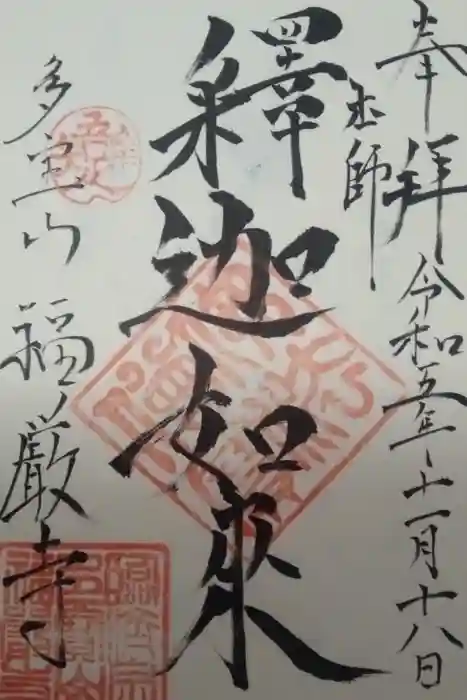 奉拝 令和五年十一月十八日
玉師
釋迦如來
多宝山 福厳寺